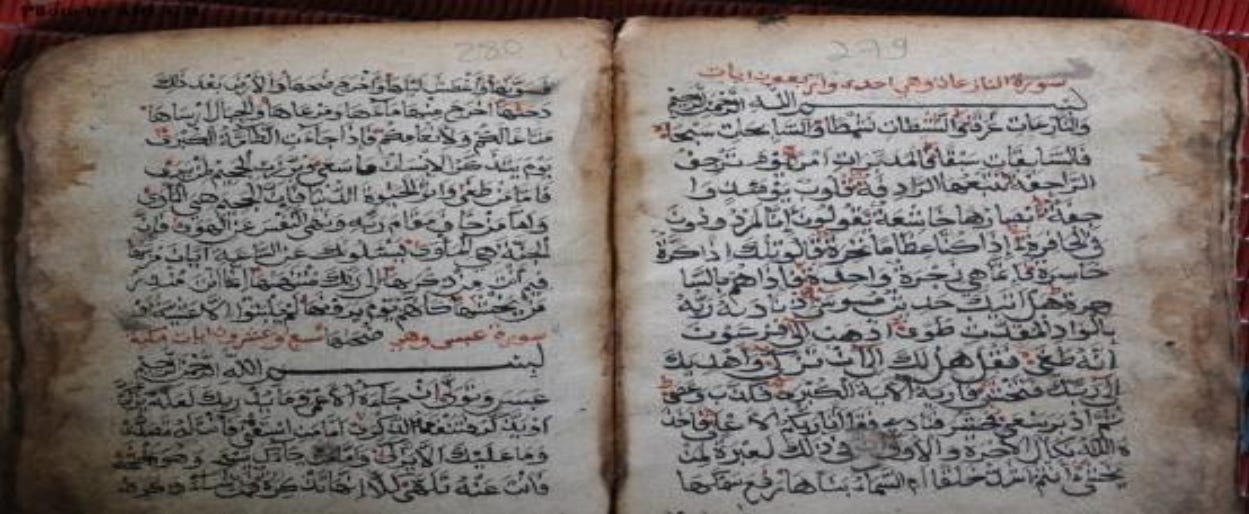 279
سورة النازعات وهي احدى واربعون ايات
بسم الله الرحمن الرحيم
والنازعات غرقا والناشطات نشطا والسابحات سبحا
فالسابقات سبقا فالمدبرات امرا يوم ترجف
الراجفة تتبعها الرادفة قلوب يومئذ وا
جفة ابصارها خاشعة يقولون إنا لمردودون
في الحافرة إذا كنا عظاما نخرة قالو تلك إذا كرة
خاسرة فإنما هي زجرة واحدة فإذا هم بالسا
هرة هل اتيك حديث موسى إذ ناديه ربه
بالواد المقدس طوى اذهب الى فرعون
انه طغى فقل هل لك الى ان تزكى واهديك
إلى ربك فتخشى فاريه الآية الكبرى فكذب وعصى
ثم ادبر يسعى فحشر فنادى فقال انا ربكم الاعلى فاخذ
ه الله نكال الاخرة والاولى ان في ذلك لعبرة لمن
يخشى ءانتم اشد خلقا ام السماء بناها رفع سمكها
280
فسويها واغطش ليلها واخرج ضحيها والارض بعد ذلك
دحيها اخرج منها ماءها ومرعاها والجبال ارساها
متاعا لكم ولانعامكم فاذا جاءت الطامة الكبرى
يوم يتذكر الانسان ما سعى وبرزت الجحيم لمن يرى
فاما من طغى واثر الحيوة الدنيا فان الجحيم هي الماوى
واما من خاف مقام ربه ونهى النفس عن الهوى فان
الجنة هي الماوى يسئلونك عن الساعة ايان مرسها
فيم انت من ذكريها الى ربك منتهيها انما انت منذر
من يخشيها كانهم يوم يرونها لم يلبثوا الا عشية او
ضحيها سورة عبس وهي تسع وعشرون ايات مكية
بسم الله الرحمن الرحيم
عبس وتولى ان جاءه الاعمى وما يدريك لعله يزكى
او يذكر فتنفعه الذكرى اما من استغنى فانت له تصدى
وما عليك الا يزكى واما من جاءك يسعى وهو يخشى
فانت عنه تلهى كلا انها تذكرة فمن شاء ذكره